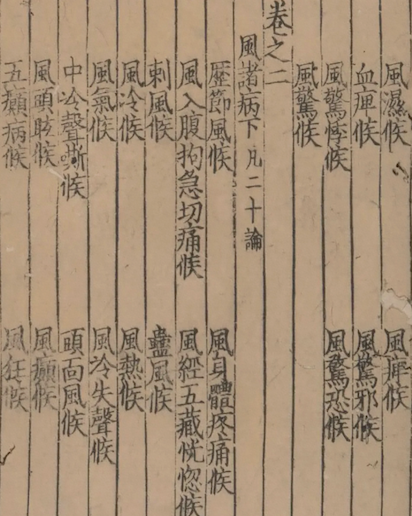 風濕候 風痺候
血痺候 風驚邪候
風驚悸候 風驚恐候
風驚候
卷之二
風諸病下凡二十論
歷節風候 風身體疼痛候
風入腹拘急切痛候 風經五藏恍惚候
刺風候 蠱風候
風冷候 風熱候
風氣候 風冷失聲候
中冷聲嘶候 頭面風候
風頭眩候 風癲候
五癲病候 風狂候